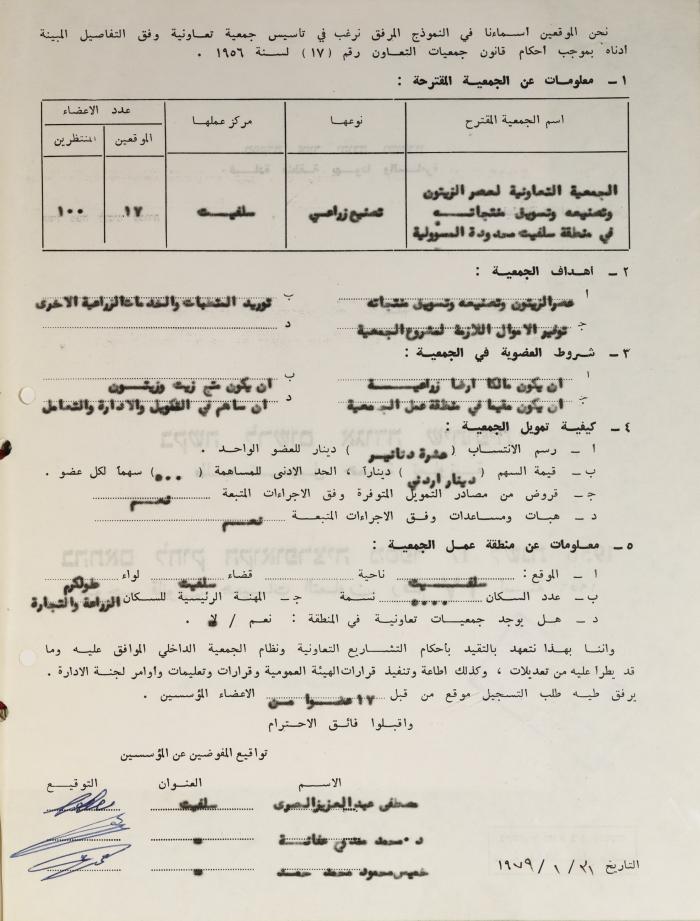 نحن الموقعين اسماءنا في النموذج المرفق نرغب في تاسيس جمعية تعاونية وفق التفاصيل المبينة
ادناه بموجب احكام قانون جمعيات التعاون رقم (١٧) لسنة ١٩٥٦ .
١ ــ معلومات عن الجمعية المقترحة :
اسم الجمعية المقترح نوعها مركز عملها عدد الاعضاء
الموقعين المنتظرين
الجمعية التعاونية لعصر الزيتون
وتصنيعه وتسويق منتجاتــه تصنيع زراعي سلفيت ١٧ ١٠٠
في منطقة سلفيت محدودة المسؤولية
٢ ــ اهداف الجمعية :
أ عصر الزيتون وتصنيعه وتسويق منتجاته ب توريد المتطلبات والخدمات الزراعية الاخرى
جـ توفير الاموال اللازمة لمشروع الجمعية د
٣ ــ شروط العضوية في الجمعية :
أ ان يكون مالكا ارضا زراعيــة ب ان يكون منتج زيت وزيتــون
جـ ان يكون مقيما في منطقة عمل الجمعية د ان ساهم في التمويل والادارة والتعامل
٤ ــ كيفية تمويل الجمعية :
أ ــ رسم الانتساب ( عشرة دنانير ) دينار للعضو الواحد .
ب ــ قيمة السهم ( دينار اردني ) ديناراً ، الحد الادنى للمساهمة ( ٥٠٠ ) سهماً لكل عضو .
جـ ــ قروض من مصادر التمويل المتوفرة وفق الاجراءات المتبعة نعــم
د ــ هبات ومساعدات وفق الاجراءات المتبعــة نعــم
٥ ــ معلومات عن منطقة عمل الجمعية :
أ ــ الموقع : سلفــيت ناحية قضاء سلفيت لواء طولكرم
ب ــ عدد السكان ٥٠٠٠ نسمة جـ ــ المهنة الرئيسية للسكان الزراعة والتجارة
د ــ هل يوجد جمعيات تعاونية في المنطقة : نعم / لا .
واننا بهذا نتعهد بالتقيد بأحكام التشاريع التعاونية ونظام الجمعية الداخلي الموافق عليه وما
قد يطرأ عليه من تعديلات ، وكذلك اطاعة وتنفيذ قرارات الهيئة العمومية وقرارات وتعليمات وأوامر لجنة الادارة .
يرفق طيه طلب التسجيل موقع من قبل ١٧ عضوا من الاعضاء المؤسسين .
واقبلوا فائق الاحترام
تواقيع المفوضين عن المؤسسين
الاســم العنوان التوقيع
مصطفى عبدالعزيز المصري سلفيت
د . محمد
خميس محمود محمد حمد
التاريخ ٢١ / ١ / ١٩٧٩